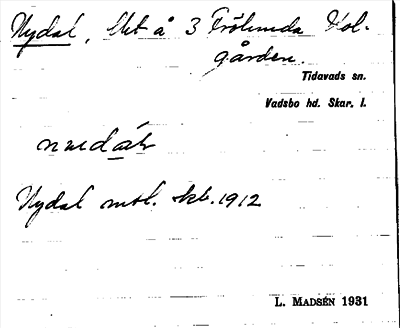 Nydal, lht å 3 Fröhunda Hol-
gården.
Tidavads sn.
Vadsbo hd. Skar. l.
Nydal mtl. kb. 1912
L. MADSÉN 1931